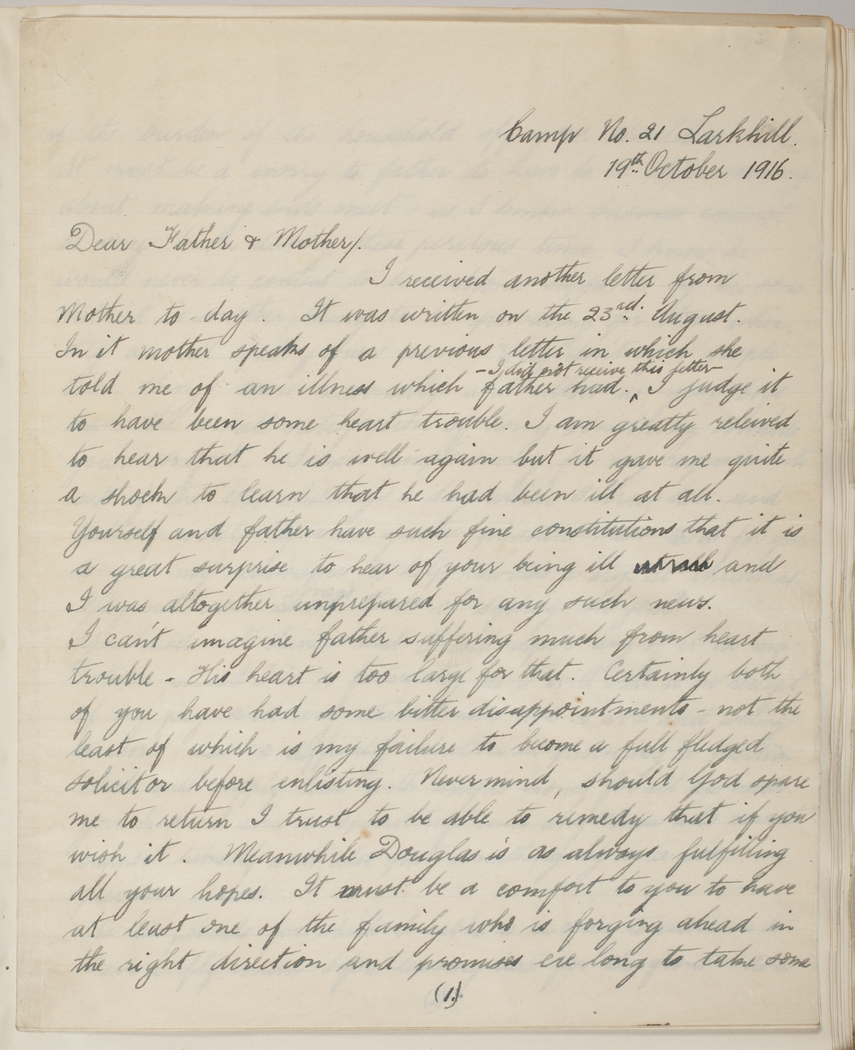 Camp No. 21 Larkhill.
19th October 1916.
Dear Father & Mother/.
I received another letter from
Mother to-day. It was written on the 23rd. August.
In it mother speaks of a previous letter in which she
- I did not receive this letter -
told me of an illness which father had. ^ I judge it
to have been some heart trouble. I am greatly releived
to hear that he is well again but it gave me quite
a shock to learn that he had been ill at all.
Yourself and father have such fine constitutions that it is
a great surprise to hear of your being ill and
I was altogether unprepared for any such news.
I can't imagine father suffering much from heart
trouble - His heart is too large for that. Certainly both
of you have had some bitter disappointments - not the
least of which is my failure to become a full fledged
solicitor before enlisting. Nevermind, should God spare
me to return I trust to be able to remedy that if you
wish it. Meanwhile Douglas is as always fulfilling
all your hopes. It must be a comfort to you to have
at least one of the family who is forging ahead in
the right direction and promises ere long to take some
(1.)